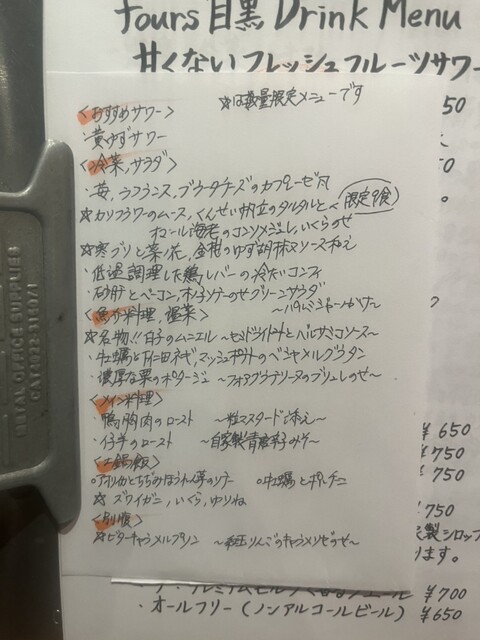 fours 目黒 Drink Menu
甘くないフレッシュフルーツサワー
<おすすめサワー> ☆は数量限定メニューです
・黄ゆずサワー
<冷菜、サラダ>
・苺、ラフランス、ブラータチーズのカプレーゼ風
☆カリフラワーのムース、くんせい帆立のタルタルと 限定9食
オマール海老のコンソメジュレ、いくらのせ
☆寒ブリと菜の花、金柑のゆず胡椒ソース和え
・低温調理した鶏レバーの冷たいコンフィ
・砂肝とベーコン、のせグリーンサラダ
<魚介料理、温菜>
☆名物!!白子のムニエル 〜セミドライトマトとバルサミコソース〜
・牡蠣と下仁田ネギ、マッシュポテトのベシャメルグラタン
・濃厚な栗のポタージュ 〜フォアグラテリーヌのブリュレのせ〜
<メイン料理>
・鴨胸肉のロースト 〜粒マスタード添え〜
・仔羊のロースト 〜自家製青唐辛子みそ〜
<土鍋飯>
○牡蠣とポルチーニ
☆ズワイガニ、いくら、ゆりね
<別腹>
☆ビターキャラメルプリン 〜紅玉りんごのキャラメリゼのせ〜
¥650
¥750
¥750
¥750
製シロップ
ります。
¥700
・オールフリー(ノンアルコールビール) ¥650
METAL OFFICE SUPPLIES